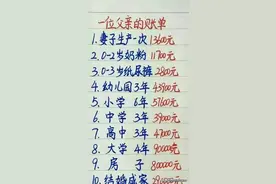 一位父亲的账单
1.妻子生产一次 13600元
2.0-2岁奶粉 11700元
3.0-3岁纸尿裤 2800元
4.幼儿园3年 45900元
5.小学 6年 51600元
6.中学 3年 39000元
7.高中 3年 47000元
8.大学 4年 90000元
9.房子 800000元
10.结婚成家